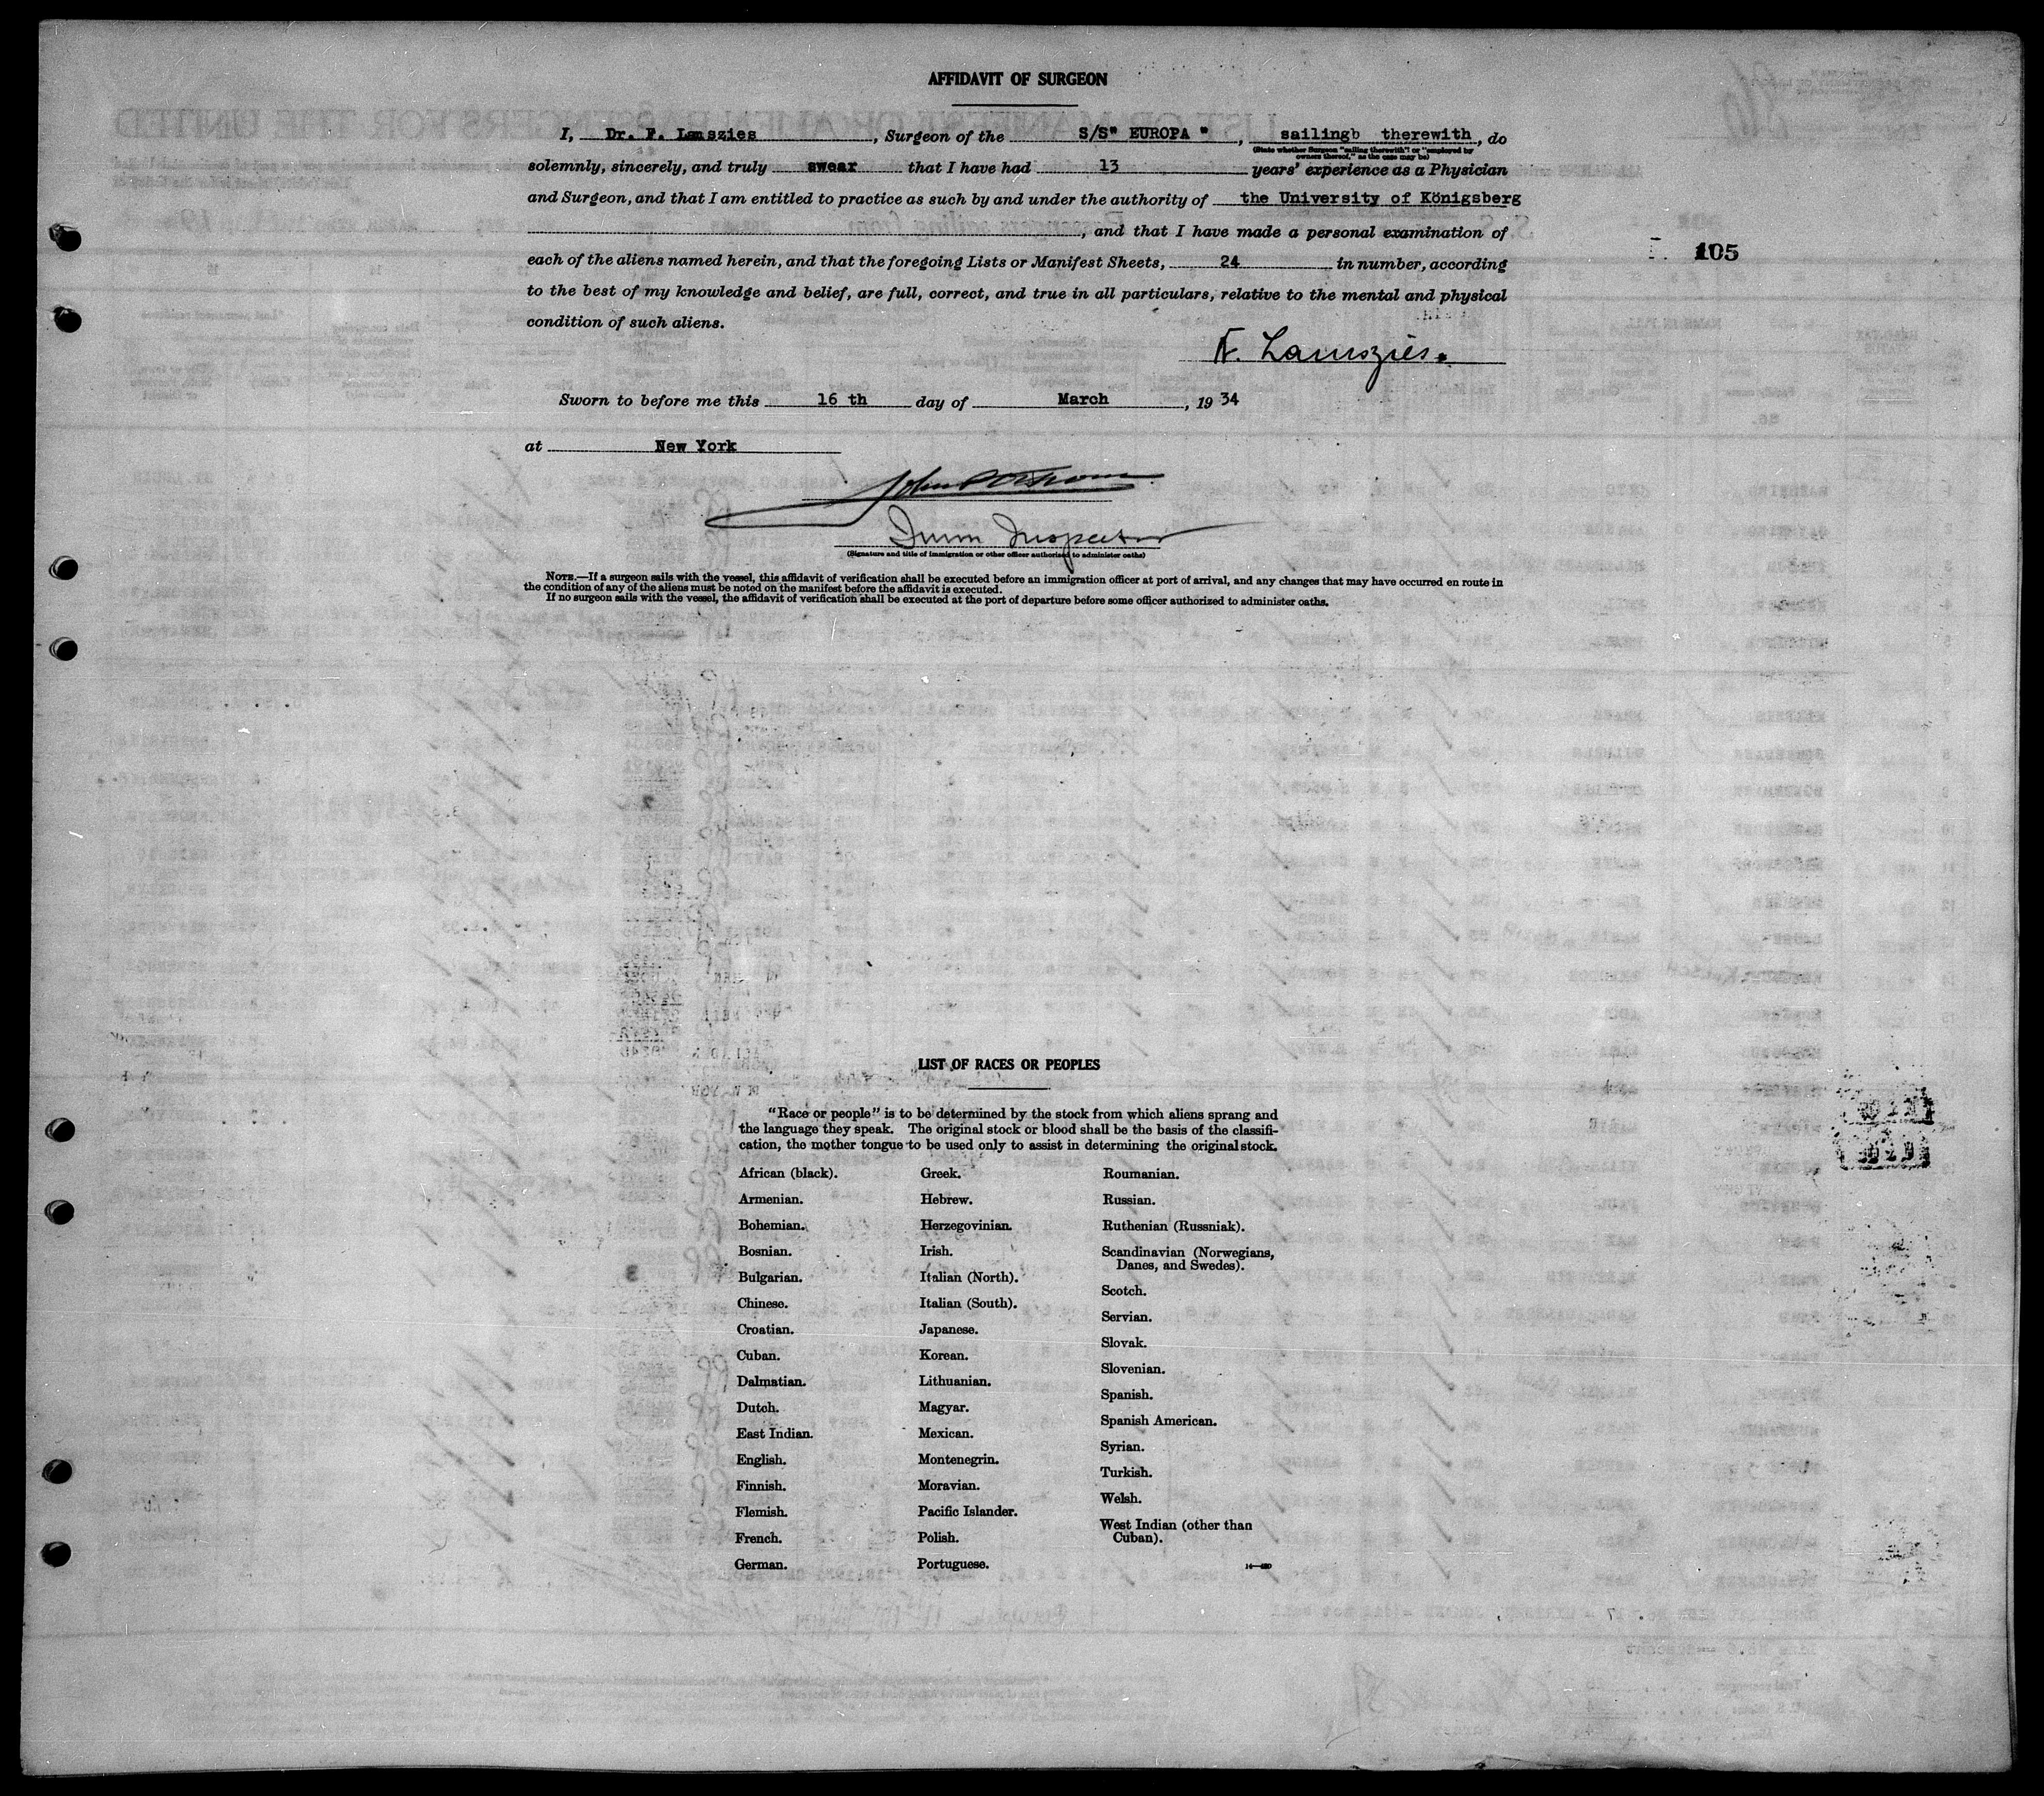 AFFIDAVIT OF SURGEON
I, Dr. F. Lamszies, Surgeon of the S/S" EUROPA ", sailingb therewith, do
(State whether Surgeon "sailing therewith" or "employed by
owners thereof," as the case may be)
solemnly, sincerely, and truly swear that I have had 13 years' experience as a Physician
and Surgeon, and that I am entitled to practice as such by and under the authority of the University of Königsberg
, and that I have made a personal examination of
105
each of the aliens named herein, and that the foregoing Lists or Manifest Sheets, 24 in number, according
to the best of my knowledge and belief, are full, correct, and true in all particulars, relative to the mental and physical
condition of such aliens.
F. Lamszies.
Sworn to before me this 16 th day of March, 19 34
at New York
Imm Inspector
(Signature and title of immigration or other officer authorized to administer oaths)
NOTE.—If a surgeon sails with the vessel, this affidavit of verification shall be executed before an immigration officer at port of arrival, and any changes that may have occurred en route in
the condition of any of the aliens must be noted on the manifest before the affidavit is executed.
If no surgeon sails with the vessel, the affidavit of verification shall be executed at the port of departure before some officer authorized to administer oaths.
LIST OF RACES OR PEOPLES
"Race or people" is to be determined by the stock from which aliens sprang and
the language they speak. The original stock or blood shall be the basis of the classifi-
cation, the mother tongue to be used only to assist in determining the original stock.
African (black).
Armenian.
Bohemian.
Bosnian.
Bulgarian.
Chinese.
Croatian.
Cuban.
Dalmatian.
Dutch.
East Indian.
English.
Finnish.
Flemish.
French.
German.
Greek.
Hebrew.
Herzegovinian.
Irish.
Italian (North).
Italian (South).
Japanese.
Korean.
Lithuanian.
Magyar.
Mexican.
Montenegrin.
Moravian.
Pacific Islander.
Polish.
Portuguese.
Roumanian.
Russian.
Ruthenian (Russniak).
Scandinavian (Norwegians,
Danes, and Swedes).
Scotch.
Servian.
Slovak.
Slovenian.
Spanish.
Spanish American.
Syrian.
Turkish.
Welsh.
West Indian (other than
Cuban).